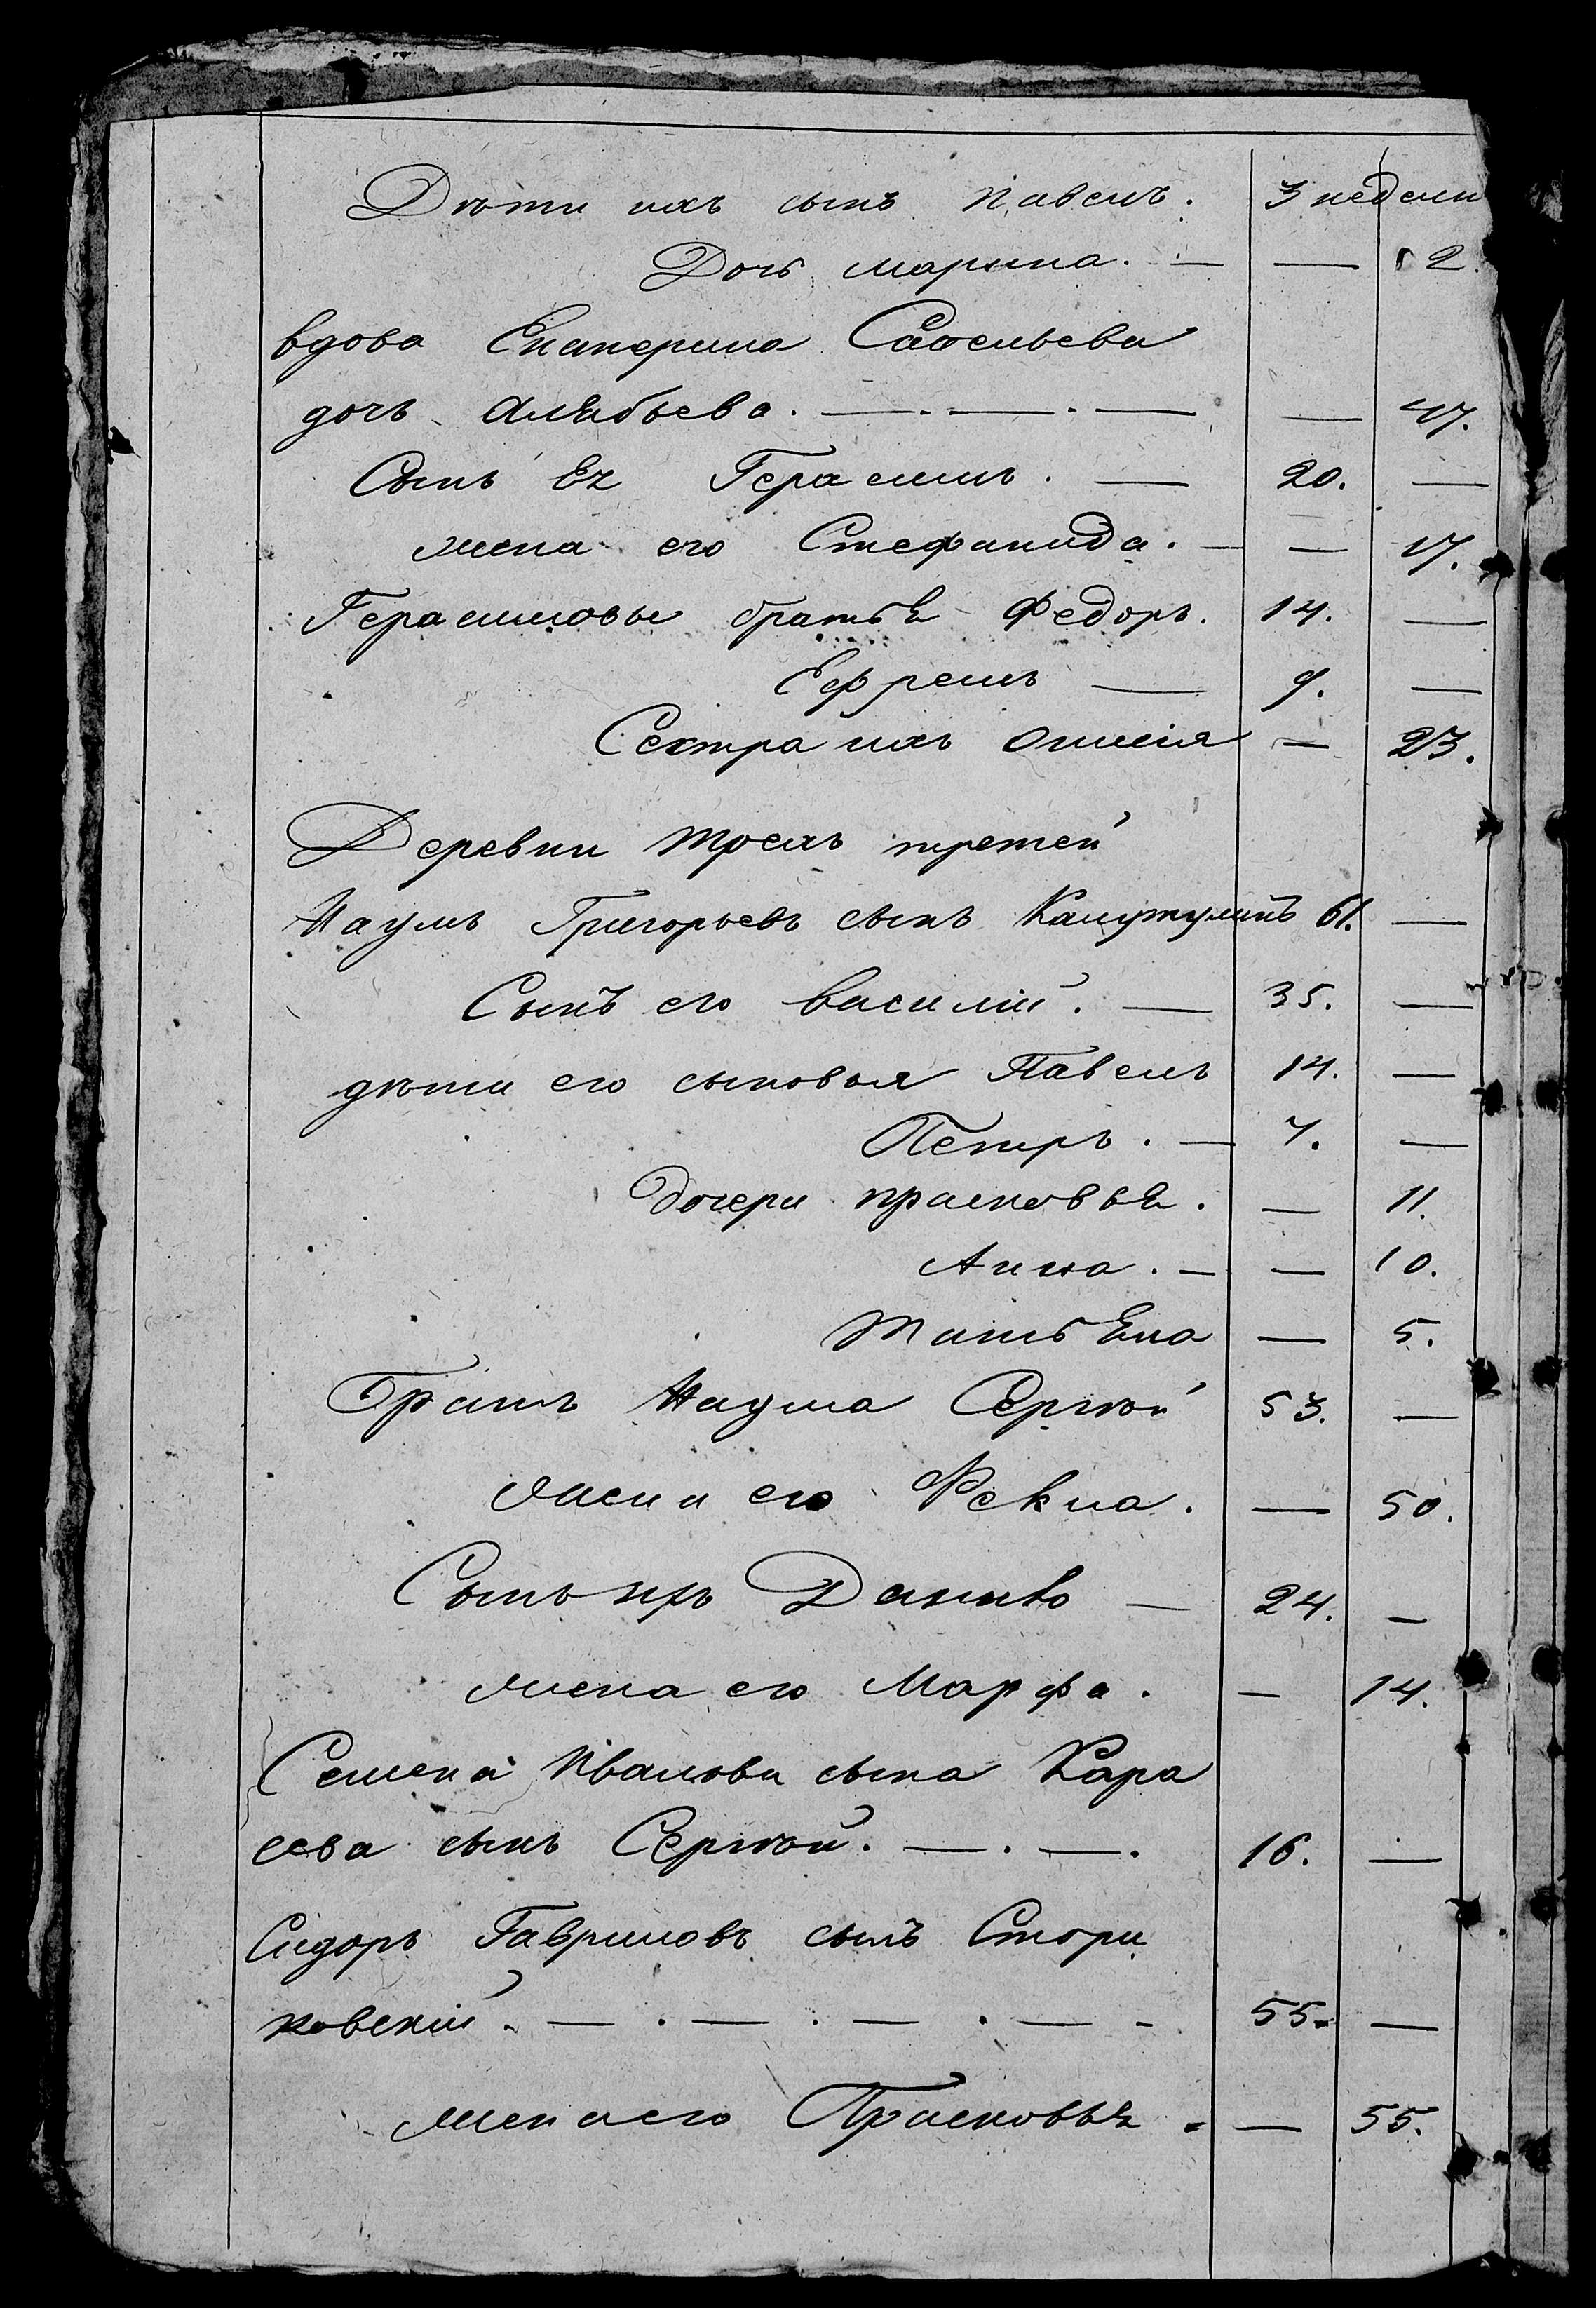 Дѣти ихъ сынъ Павелъ. 3 недели
Дочь марина. — — 2.
вдова Екатерина Савельева
дочь Алябьева. — . — . — — 47.
Сынъ Ея Герасимъ. — 20. —
жена его Стефанида. — — 17.
Герасимовы братья Федоръ. 14. —
Ефремъ — 9. —
Сестра ихъ — 23.
Деревни Трехъ третей
Наумъ Григорьевъ сынъ 61. —
Сынъ его василий. — 35. —
дѣти его сыновья Павелъ 14. —
Петръ. — 7. —
Дочери прасковья. — 11.
Анна. — — 10.
Татьяна — 5.
Братъ Наума Сергѣй 53. —
жена его Фекла. — 50.
Сынъ ихъ Данило — 24. —
жена его Марфа. — 14.
Семена Иванова сына Кара
сева сынъ Сергѣй. — . — . 16. —
Сидоръ Гавриловъ сынъ
— . — . — . — - 55. —
жена его Прасковья. — 55.